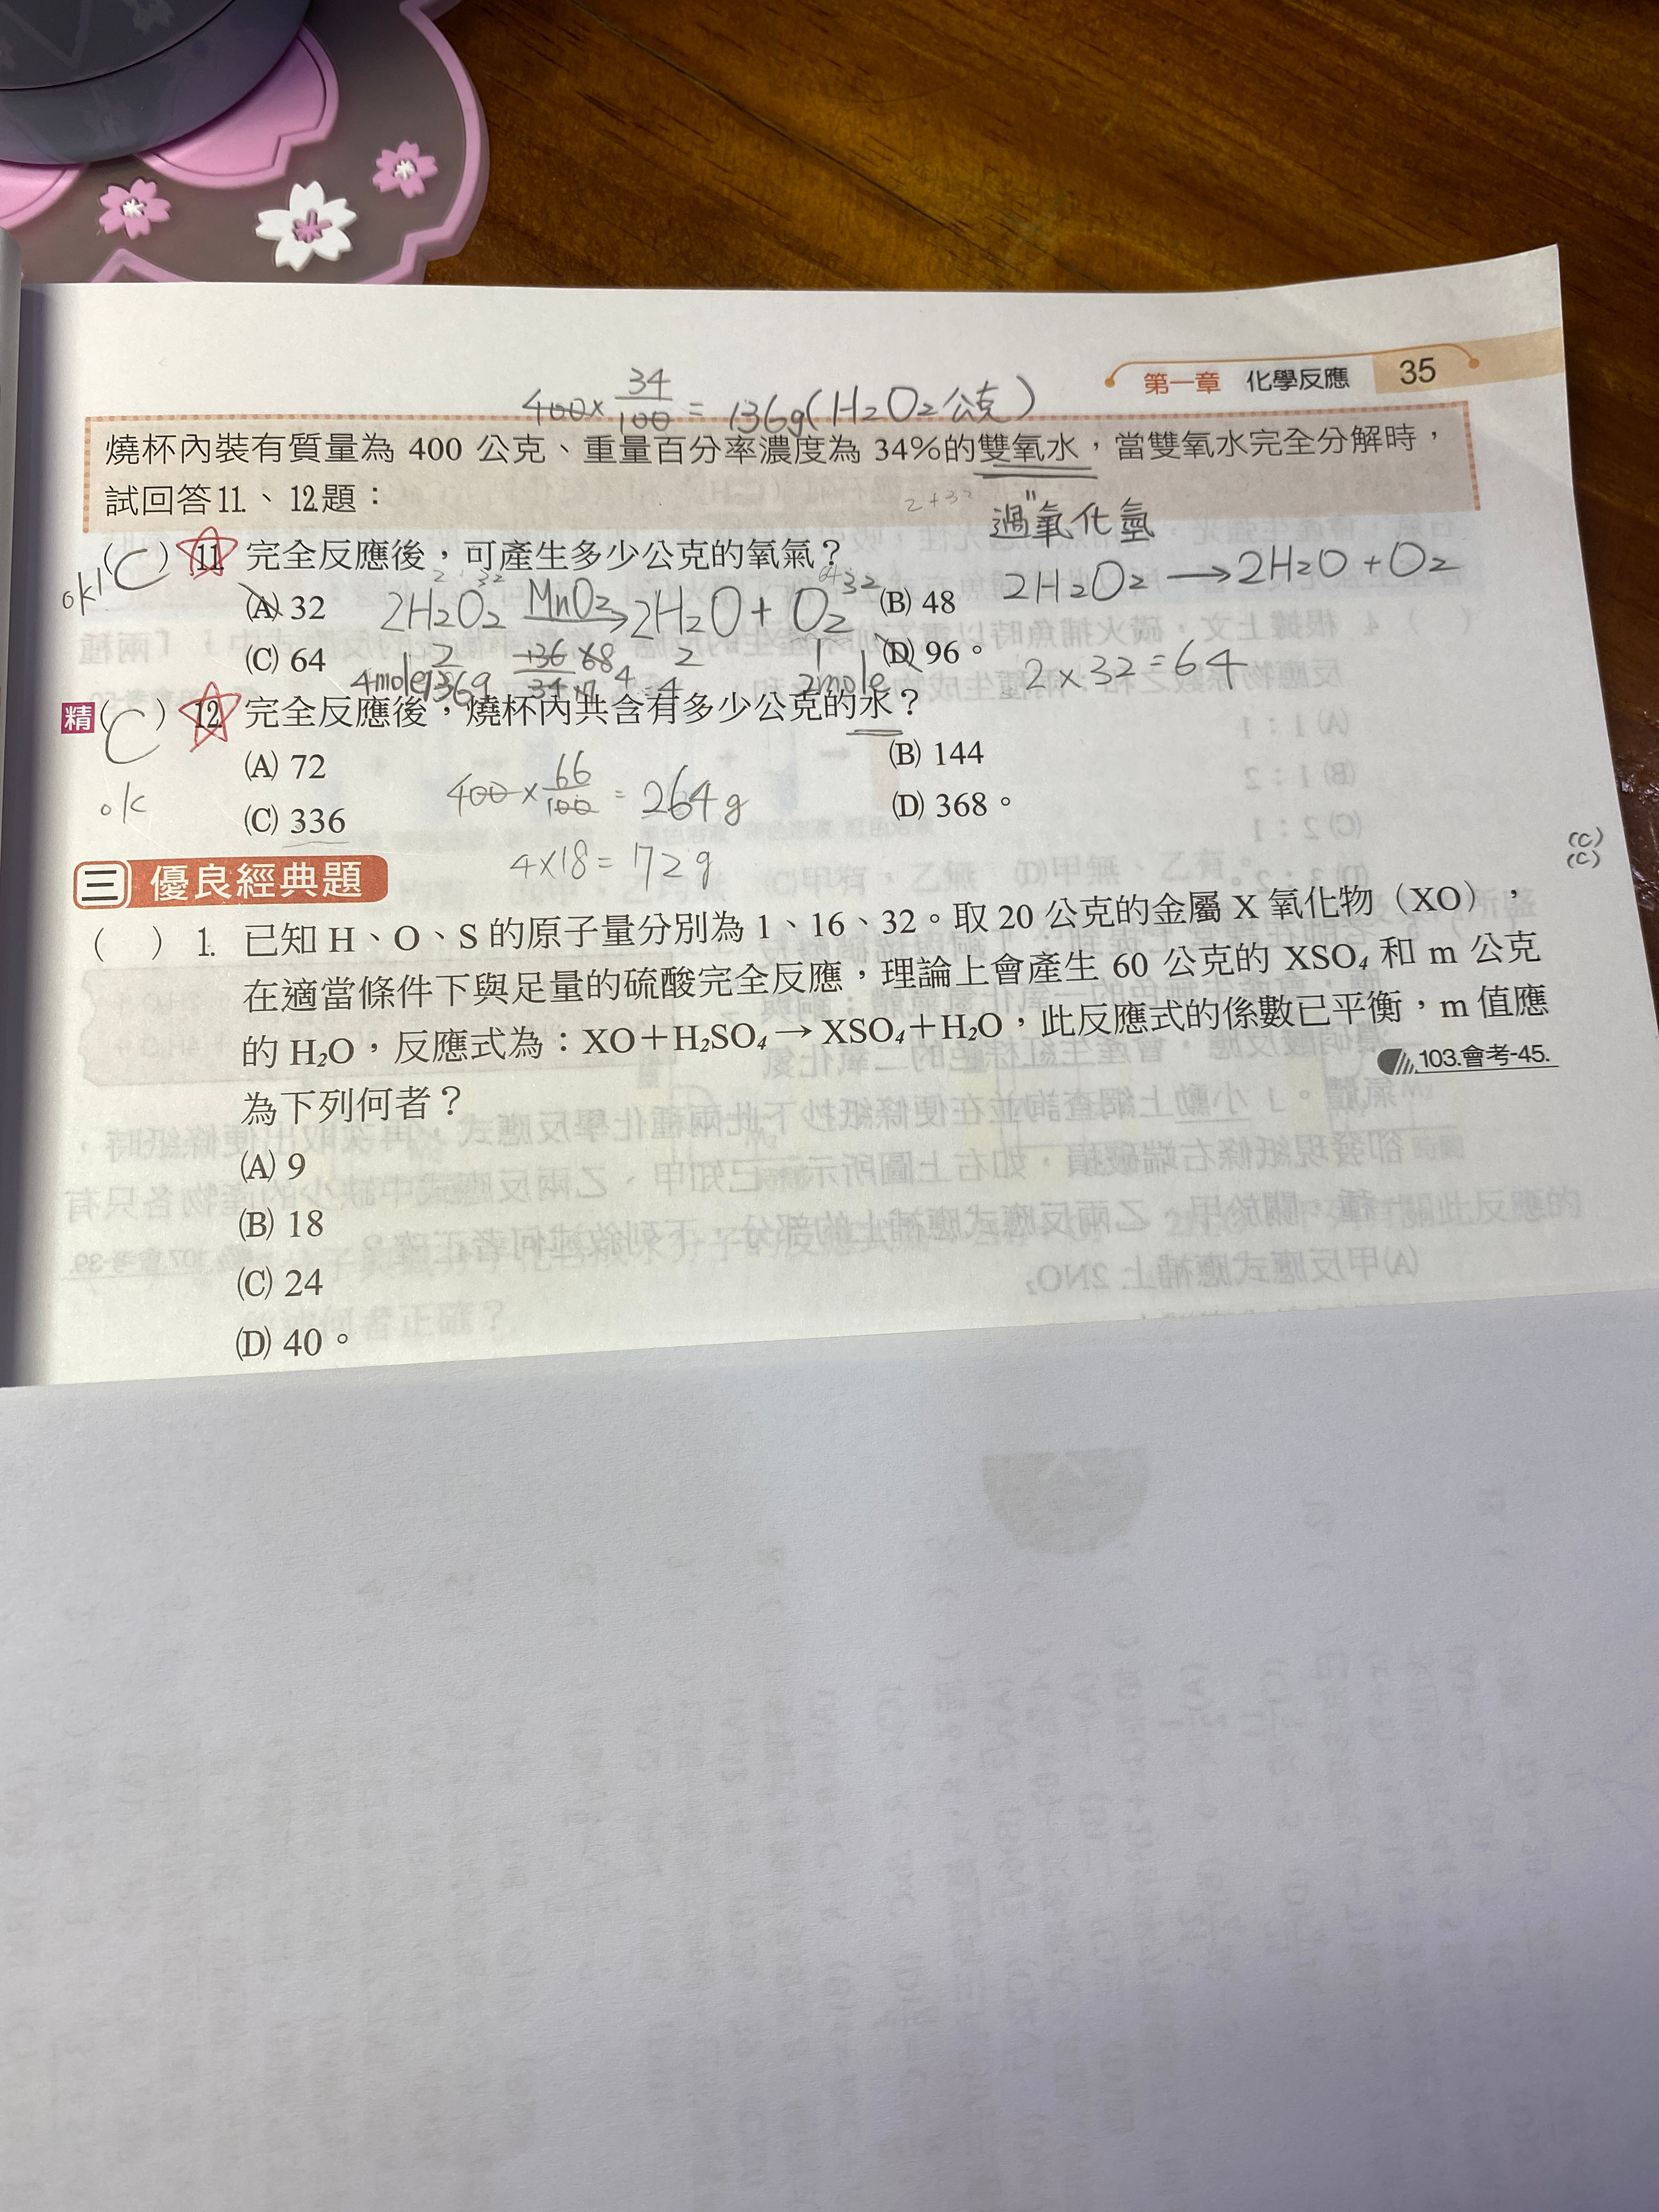 第一章 化學反應 35
400×34/100=136g(H₂O₂公克)
燒杯內裝有質量為 400 公克、重量百分率濃度為 34%的雙氧水，當雙氧水完全分解時，
試回答11.、12.題：
2+32
過氧化氫
2H₂O₂→2H₂O+O₂
ok!
(C) 11. 完全反應後，可產生多少公克的氧氣？
(A) 32
2H₂O₂ MnO₂→ 2H₂O + O₂ 32
(B) 48
(C) 64
(D) 96。
2×32=64
4mole
136g
2mole
精(C) 12. 完全反應後，燒杯內共含有多少公克的水？
(A) 72
(B) 144
400×66/100=264g
ok
(C) 336
(D) 368。
4×18=72g
(C)
(C)
三 優良經典題
( ) 1. 已知 H、O、S 的原子量分別為 1、16、32。取 20 公克的金屬 X 氧化物（XO），
在適當條件下與足量的硫酸完全反應，理論上會產生 60 公克的 XSO₄ 和 m 公克
的 H₂O，反應式為：XO＋H₂SO₄→ XSO₄＋H₂O，此反應式的係數已平衡，m 值應
為下列何者？
103.會考-45.
(A) 9
(B) 18
(C) 24
(D) 40。